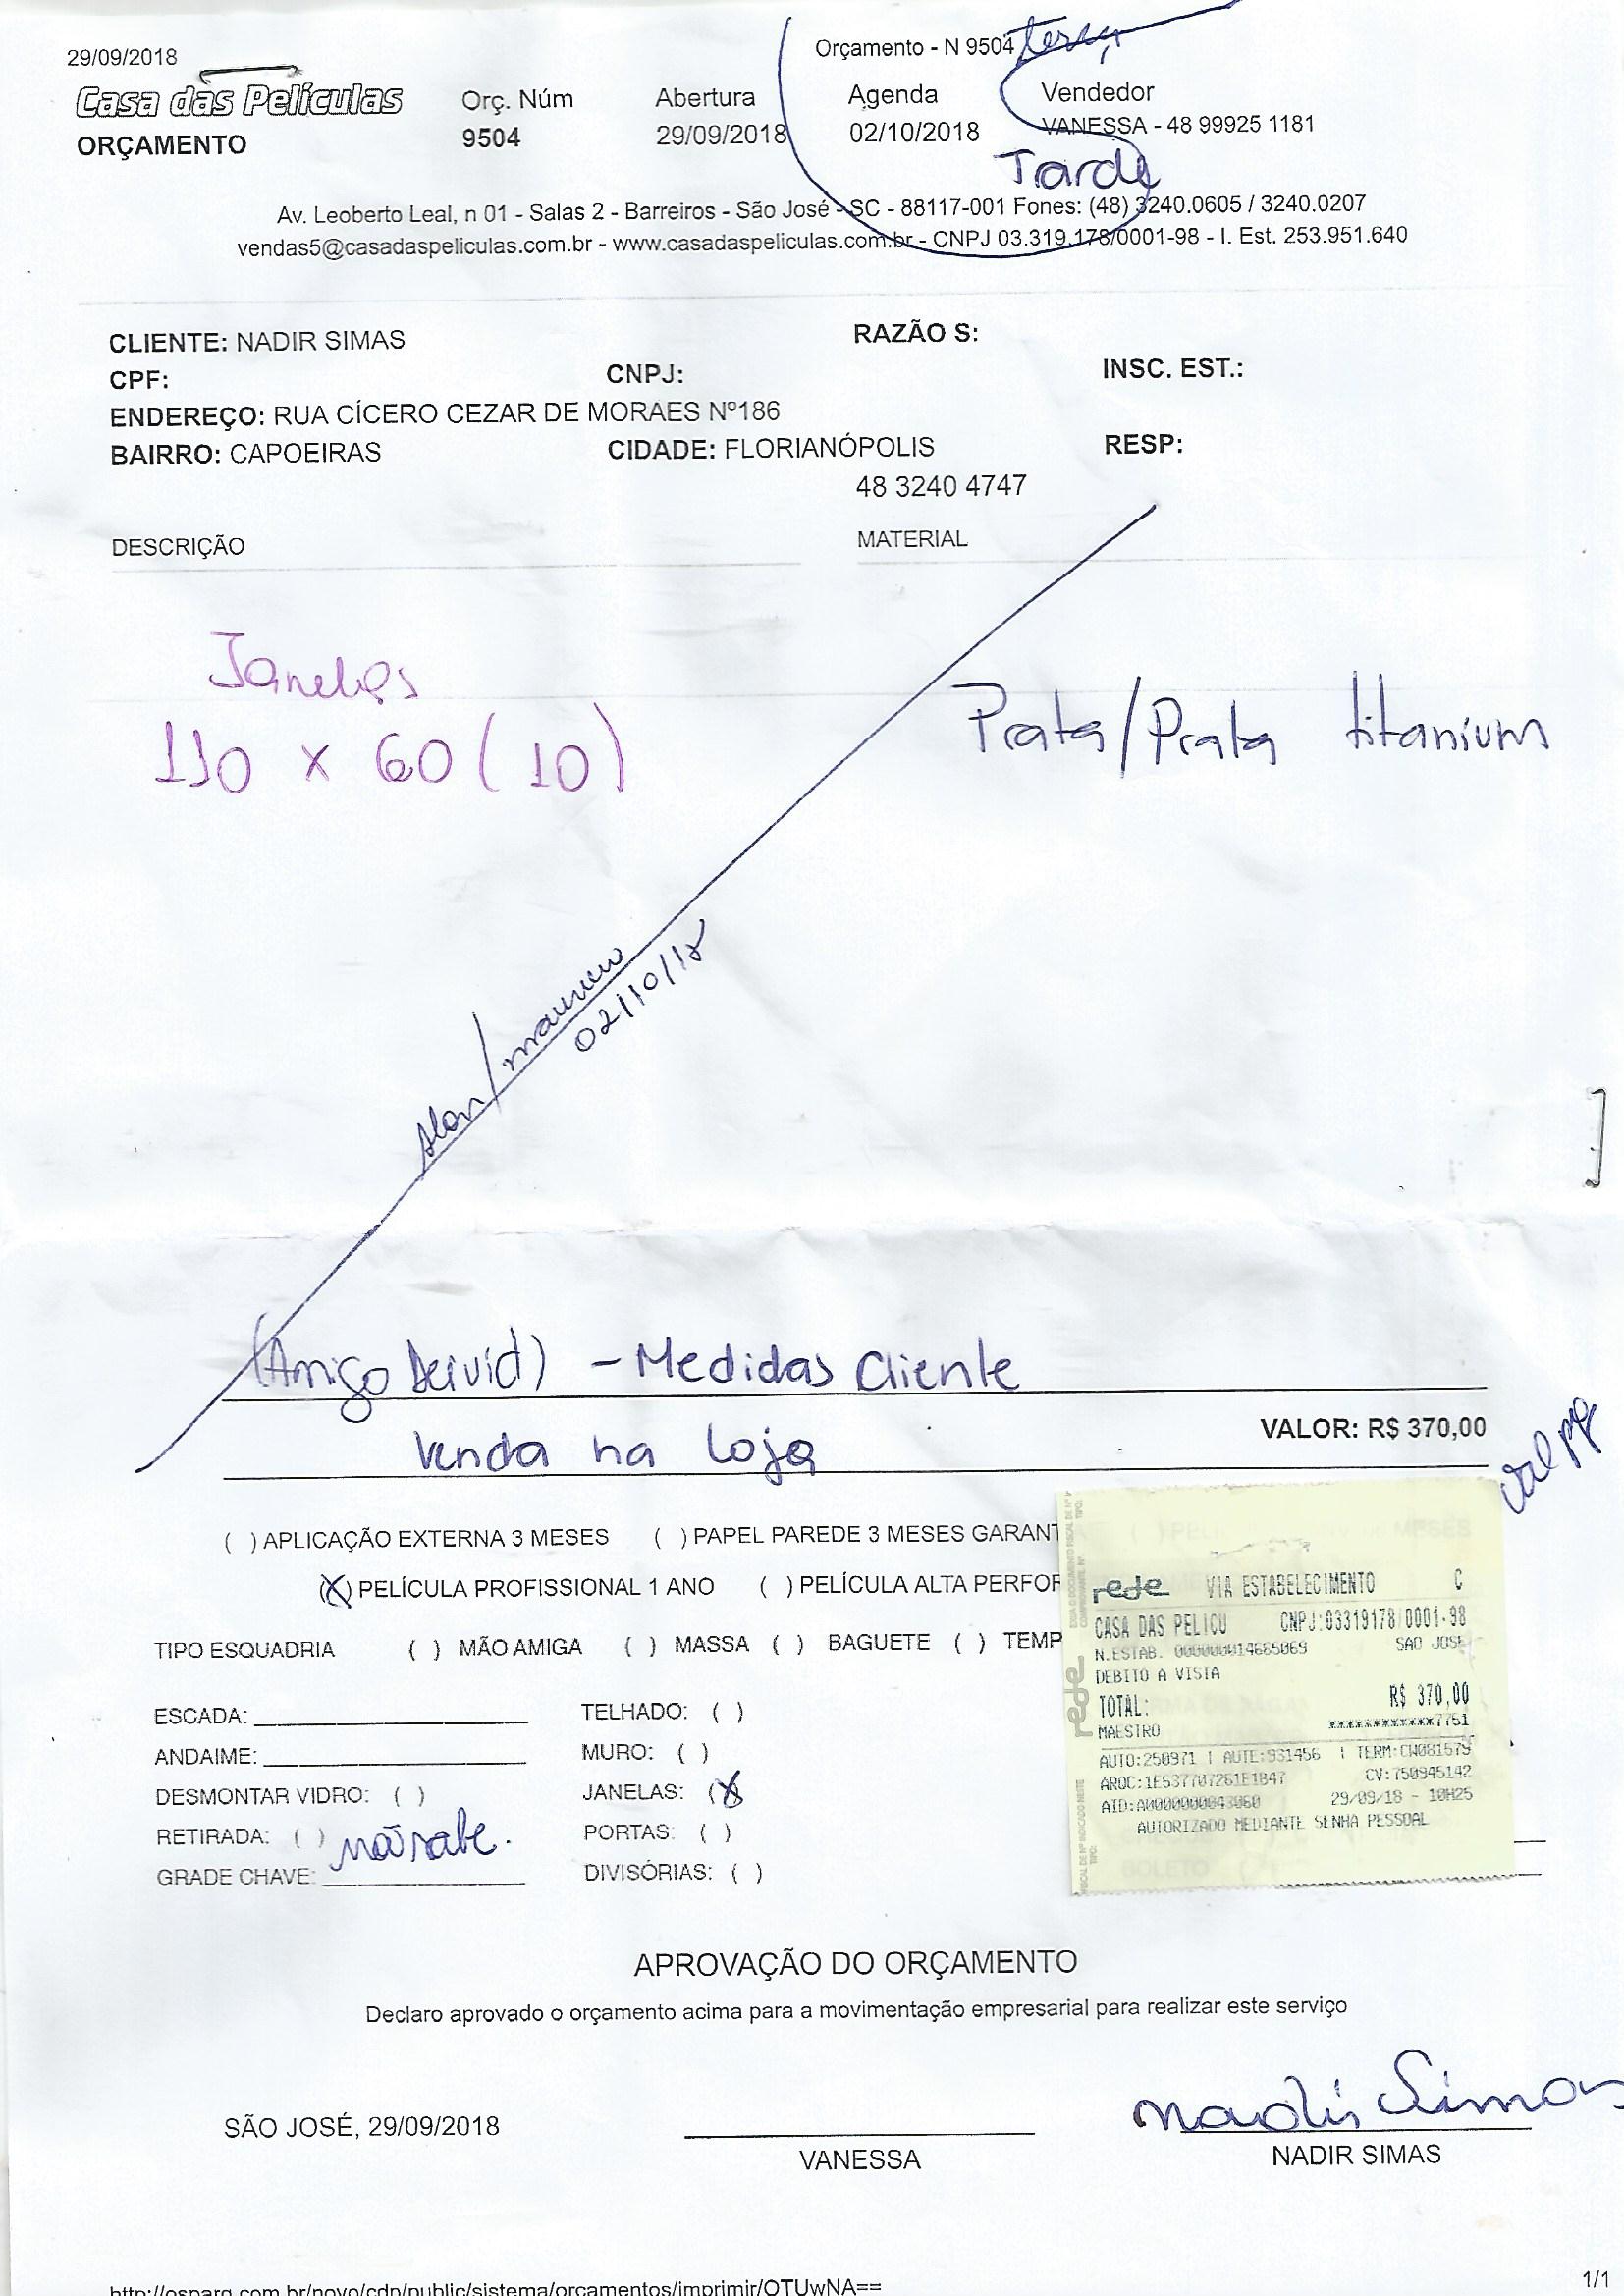 29/09/2018
Orçamento - N 9504 terça
Casa das Películas
ORÇAMENTO
Orç. Núm
9504
Abertura
29/09/2018
Agenda
02/10/2018
Vendedor
VANESSA - 48 99925 1181
Tarde
Av. Leoberto Leal, n 01 - Salas 2 - Barreiros - São José - SC - 88117-001 Fones: (48) 3240.0605 / 3240.0207
vendas5@casadaspeliculas.com.br - www.casadaspeliculas.com.br - CNPJ 03.319.178/0001-98 - I. Est. 253.951.640
CLIENTE: NADIR SIMAS RAZÃO S:
CPF: CNPJ: INSC. EST.:
ENDEREÇO: RUA CÍCERO CEZAR DE MORAES Nº186
BAIRRO: CAPOEIRAS CIDADE: FLORIANÓPOLIS RESP:
48 3240 4747
DESCRIÇÃO MATERIAL
Janelas
110 x 60 (10)
Prata/Prata titanium
02/10/18
(Amigo Deivid) - Medidas Cliente
Venda na loja
VALOR: R$ 370,00
( ) APLICAÇÃO EXTERNA 3 MESES ( ) PAPEL PAREDE 3 MESES GARANT
(X) PELÍCULA PROFISSIONAL 1 ANO ( ) PELÍCULA ALTA PERFOR
TIPO ESQUADRIA ( ) MÃO AMIGA ( ) MASSA ( ) BAGUETE ( ) TEMP
ESCADA: TELHADO: ( )
ANDAIME: MURO: ( )
DESMONTAR VIDRO: ( ) JANELAS: (X)
RETIRADA: ( ) não sabe. PORTAS: ( )
GRADE CHAVE: DIVISÓRIAS: ( )
rede VIA ESTABELECIMENTO C
CASA DAS PELICU CNPJ:03319178/0001-98
N.ESTAB. 000000014685069 SAO JOSE
DEBITO A VISTA
TOTAL: R$ 370,00
MAESTRO ************7751
AUTO:250971 | AUTE:931456 | TERM:CW081579
AROC:1E637707261E1B47 CV:750945142
AID:A0000000043060 29/09/18 - 10H25
AUTORIZADO MEDIANTE SENHA PESSOAL
rede
BOLETO
APROVAÇÃO DO ORÇAMENTO
Declaro aprovado o orçamento acima para a movimentação empresarial para realizar este serviço
Nadir Simas
SÃO JOSÉ, 29/09/2018
VANESSA NADIR SIMAS
http://osparq.com.br/novo/cdp/public/sistema/orcamentos/imprimir/OTUwNA==
1/1